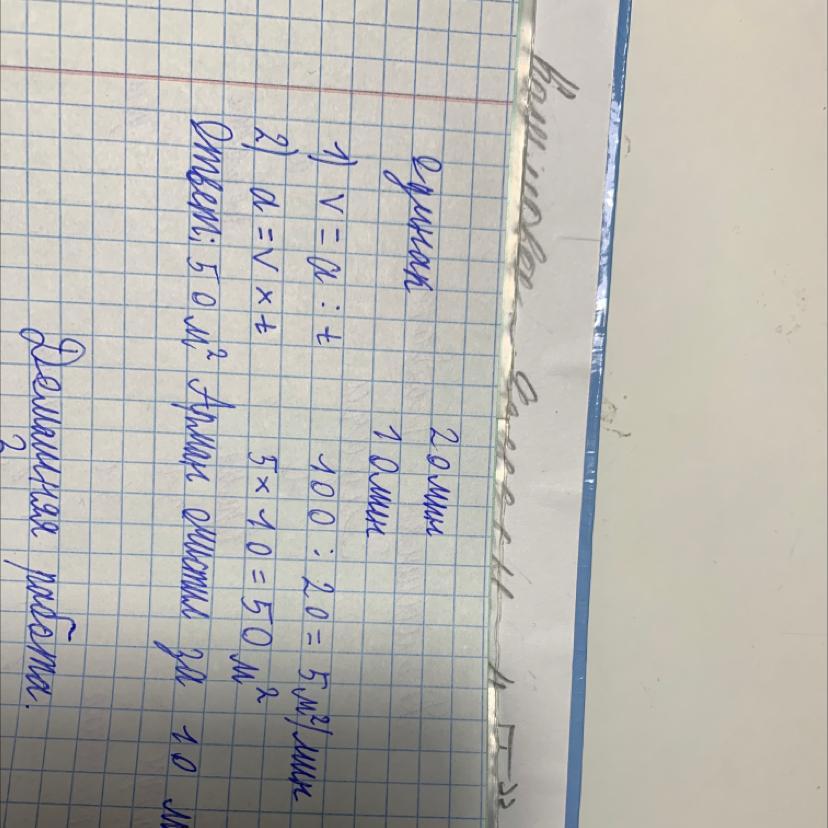 20 мин
10 мин
1) v = a : t 100 : 20 = 5 м²/мин
2) a = v × t 5 × 10 = 50 м²
Ответ: 50 м² Арман очистил за 10 м
Домашняя работа.
2